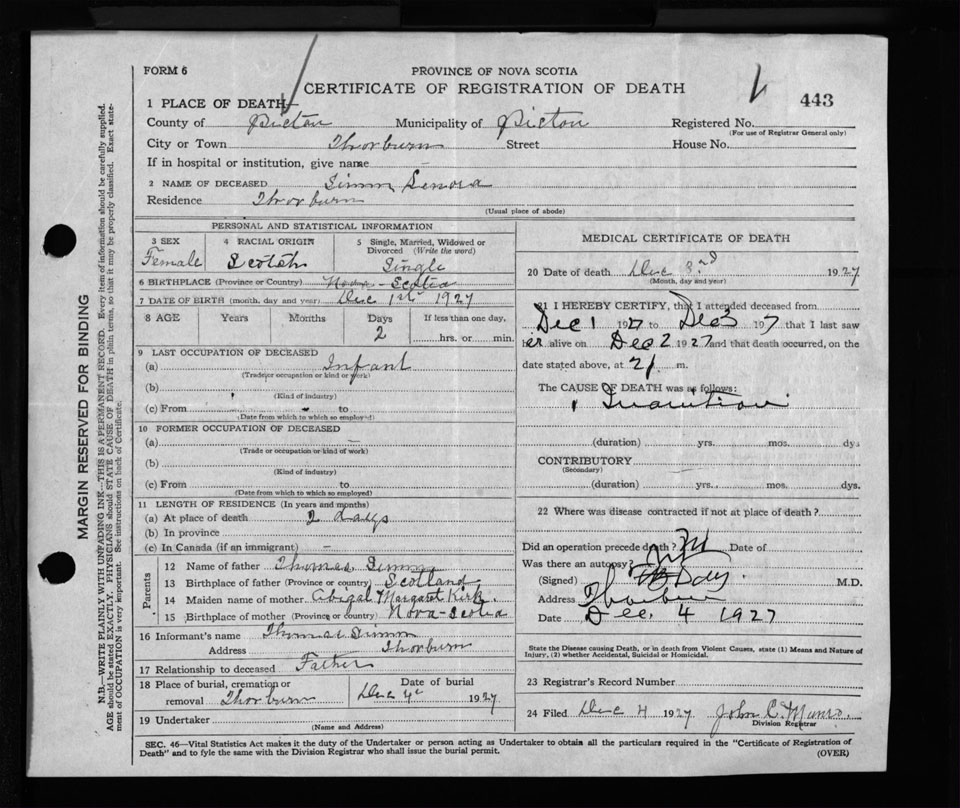 FORM 6
PROVINCE OF NOVA SCOTIA
CERTIFICATE OF REGISTRATION OF DEATH
443
1 PLACE OF DEATH—
County of Pictou Municipality of Pictou Registered No.
(For use of Registrar General only)
City or Town Thorburn Street House No.
If in hospital or institution, give name —
2 NAME OF DECEASED Simm Lenora
Residence Thorburn
(Usual place of abode)
PERSONAL AND STATISTICAL INFORMATION
3 SEX Female
4 RACIAL ORIGIN Scotch
5 Single, Married, Widowed or Divorced (Write the word) Single
6 BIRTHPLACE (Province or Country) Nova-Scotia
7 DATE OF BIRTH (month, day and year) Dec 1st 1927
8 AGE Years Months Days 2 If less than one day, hrs. or min.
9 LAST OCCUPATION OF DECEASED
(a) Infant
(Trade or occupation or kind of work)
(b)
(Kind of industry)
(c) From to
(Date from which to which so employed)
10 FORMER OCCUPATION OF DECEASED
(a) —
(Trade or occupation or kind of work)
(b)
(Kind of industry)
(c) From to
(Date from which to which so employed)
11 LENGTH OF RESIDENCE (In years and months)
(a) At place of death 2 days
(b) In province
(c) In Canada (if an immigrant) —
Parents
12 Name of father Thomas Simm
13 Birthplace of father (Province or country) Scotland
14 Maiden name of mother Abigal Margaret Kirk.
15 Birthplace of mother (Province or country) Nova-Scotia
16 Informant's name Thomas Simm
Address Thorburn
17 Relationship to deceased Father
18 Place of burial, cremation or removal Thorburn
Date of burial Dec 4 1927
19 Undertaker
(Name and Address)
MEDICAL CERTIFICATE OF DEATH
20 Date of death Dec 3rd 1927
(Month, day and year)
21 I HEREBY CERTIFY, that I attended deceased from
Dec 1 1927 to Dec 3 1927 that I last saw
her alive on Dec 2 1927 and that death occurred, on the
date stated above, at 2 m.
The CAUSE OF DEATH was as follows:
Inanition
(duration) yrs. mos. dys
CONTRIBUTORY
(Secondary)
(duration) yrs. mos. dys.
22 Where was disease contracted if not at place of death?
Did an operation precede death? Date of
Was there an autopsy?
(Signed) Day M.D.
Address Thorburn
Date Dec. 4 1927
State the Disease causing Death, or in death from Violent Causes, state (1) Means and Nature of
Injury, (2) whether Accidental, Suicidal or Homicidal.
23 Registrar's Record Number
24 Filed Dec 4 1927 John C. Munro.
Division Registrar
SEC. 46—Vital Statistics Act makes it the duty of the Undertaker or person acting as Undertaker to obtain all the particulars required in the "Certificate of Registration of
Death" and to fyle the same with the Division Registrar who shall issue the burial permit.
(OVER)
MARGIN RESERVED FOR BINDING
N.B.—WRITE PLAINLY WITH UNFADING INK—THIS IS A PERMANENT RECORD. Every item of information should be carefully supplied.
AGE should be stated EXACTLY. PHYSICIANS should STATE CAUSE OF DEATH in plain terms, so that it may be properly classified. Exact state-
ment of OCCUPATION is very important. See instructions on back of Certificate.